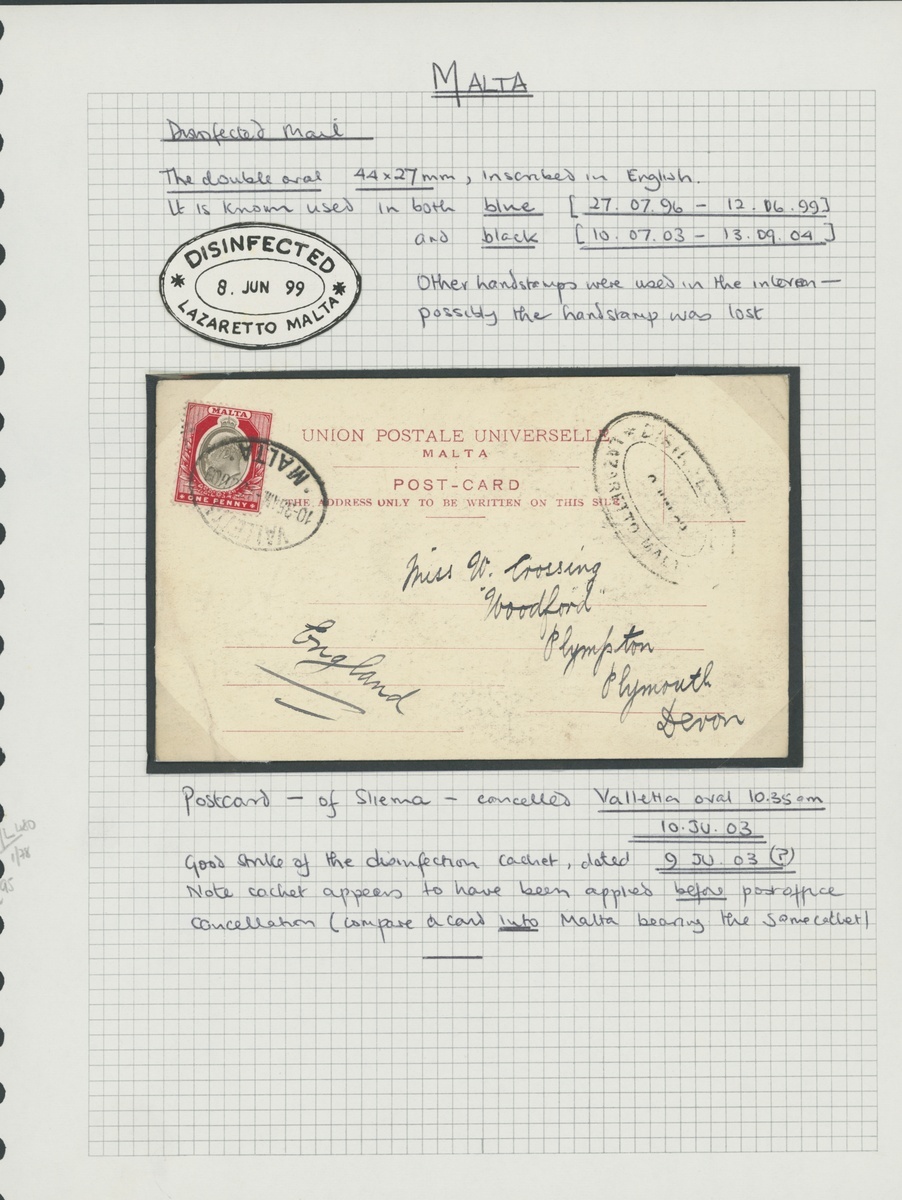 MALTA
Disinfected Mail
The double oval 44x27mm, inscribed in English.
It is known used in both blue [27.07.96 - 12.06.99]
and black [10.07.03 - 13.09.04]
DISINFECTED
* 8. JUN 99 *
LAZARETTO MALTA
Other handstamps were used in the interim —
possibly the handstamp was lost
MALTA
ONE PENNY
VALLETTA MALTA
10-35 AM
UNION POSTALE UNIVERSELLE
MALTA
POST-CARD
THE ADDRESS ONLY TO BE WRITTEN ON THIS SIDE
LAZARETTO MALT
Miss W. Crossing
"Woodford"
Plympton
Plymouth
Devon
England
Postcard — of Sliema — cancelled Valletta oval 10.35am
10.JU.03
Good strike of the disinfection cachet, dated 9 JU.03(?)
Note cachet appears to have been applied before post office
cancellation (compare a card into Malta bearing the same cachet)